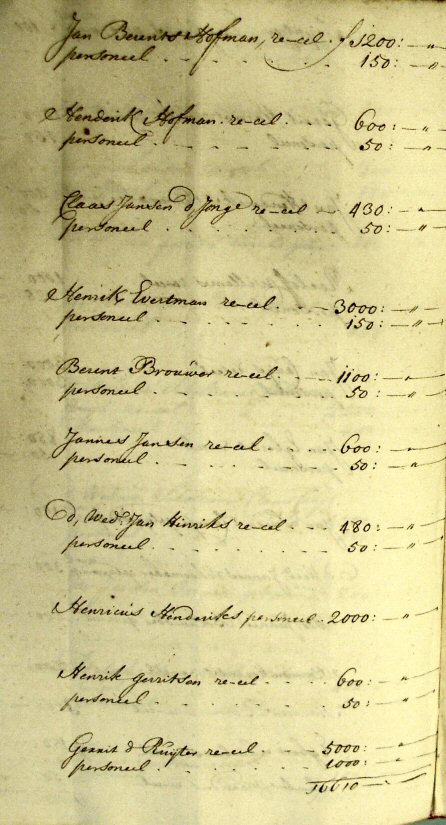 Jan Berents Hofman, re-eel. f 1200: - "
personeel - - - - 150: - "
Henderik Hofman re-eel - - - 600: - "
personeel - - - - 50: - "
Claas Jansen d Jonge re-eel - 430: - "
personeel - - - - 50: - "
Henrik Evertman re-eel - - 3000: - "
personeel - - - - 150: - "
Berent Brouwer re-eel - - 1100: - "
personeel - - - - 50: - "
Jannes Jansen re-eel - - - 600: - "
personeel - - - - 50: - "
D, Wed. Jan Hinriks re-eel - - 480: - "
personeel - - - - 50: - "
Henricus Henderiks personeel - 2000: - "
Henrik gerritsen re-eel - - - 600: - "
personeel - - - - 50: - "
Gerrit d Ruyter re-eel - - - 5000: - "
personeel - - - - 1000: - "
16610 - "